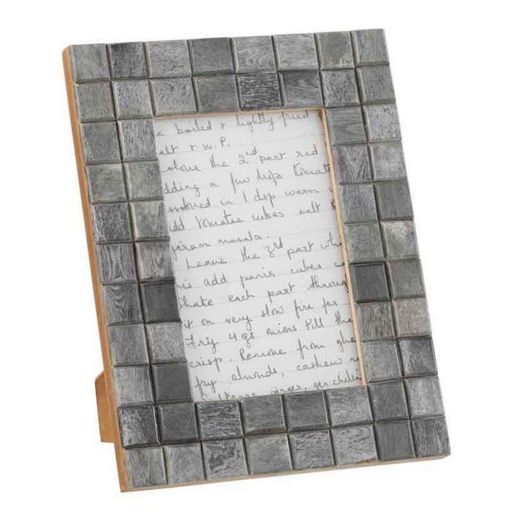 boiled & lightly fried
salt & W.P.
Colour the 2nd part red
adding a few drops tomato
in 1 drop warm
add tomatoe cubes salt &
garam masala.
Leave the 3rd part whi
add panir cubes
Shake each part throug
it on very slow fire for
Fry 4 gs onions till the
crisp. Remove from ghe
fry almonds, cashew n
ginger, gr. chill